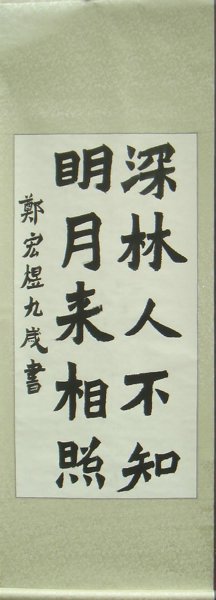 深林人不知
明月来相照
鄭宏煜九歲書